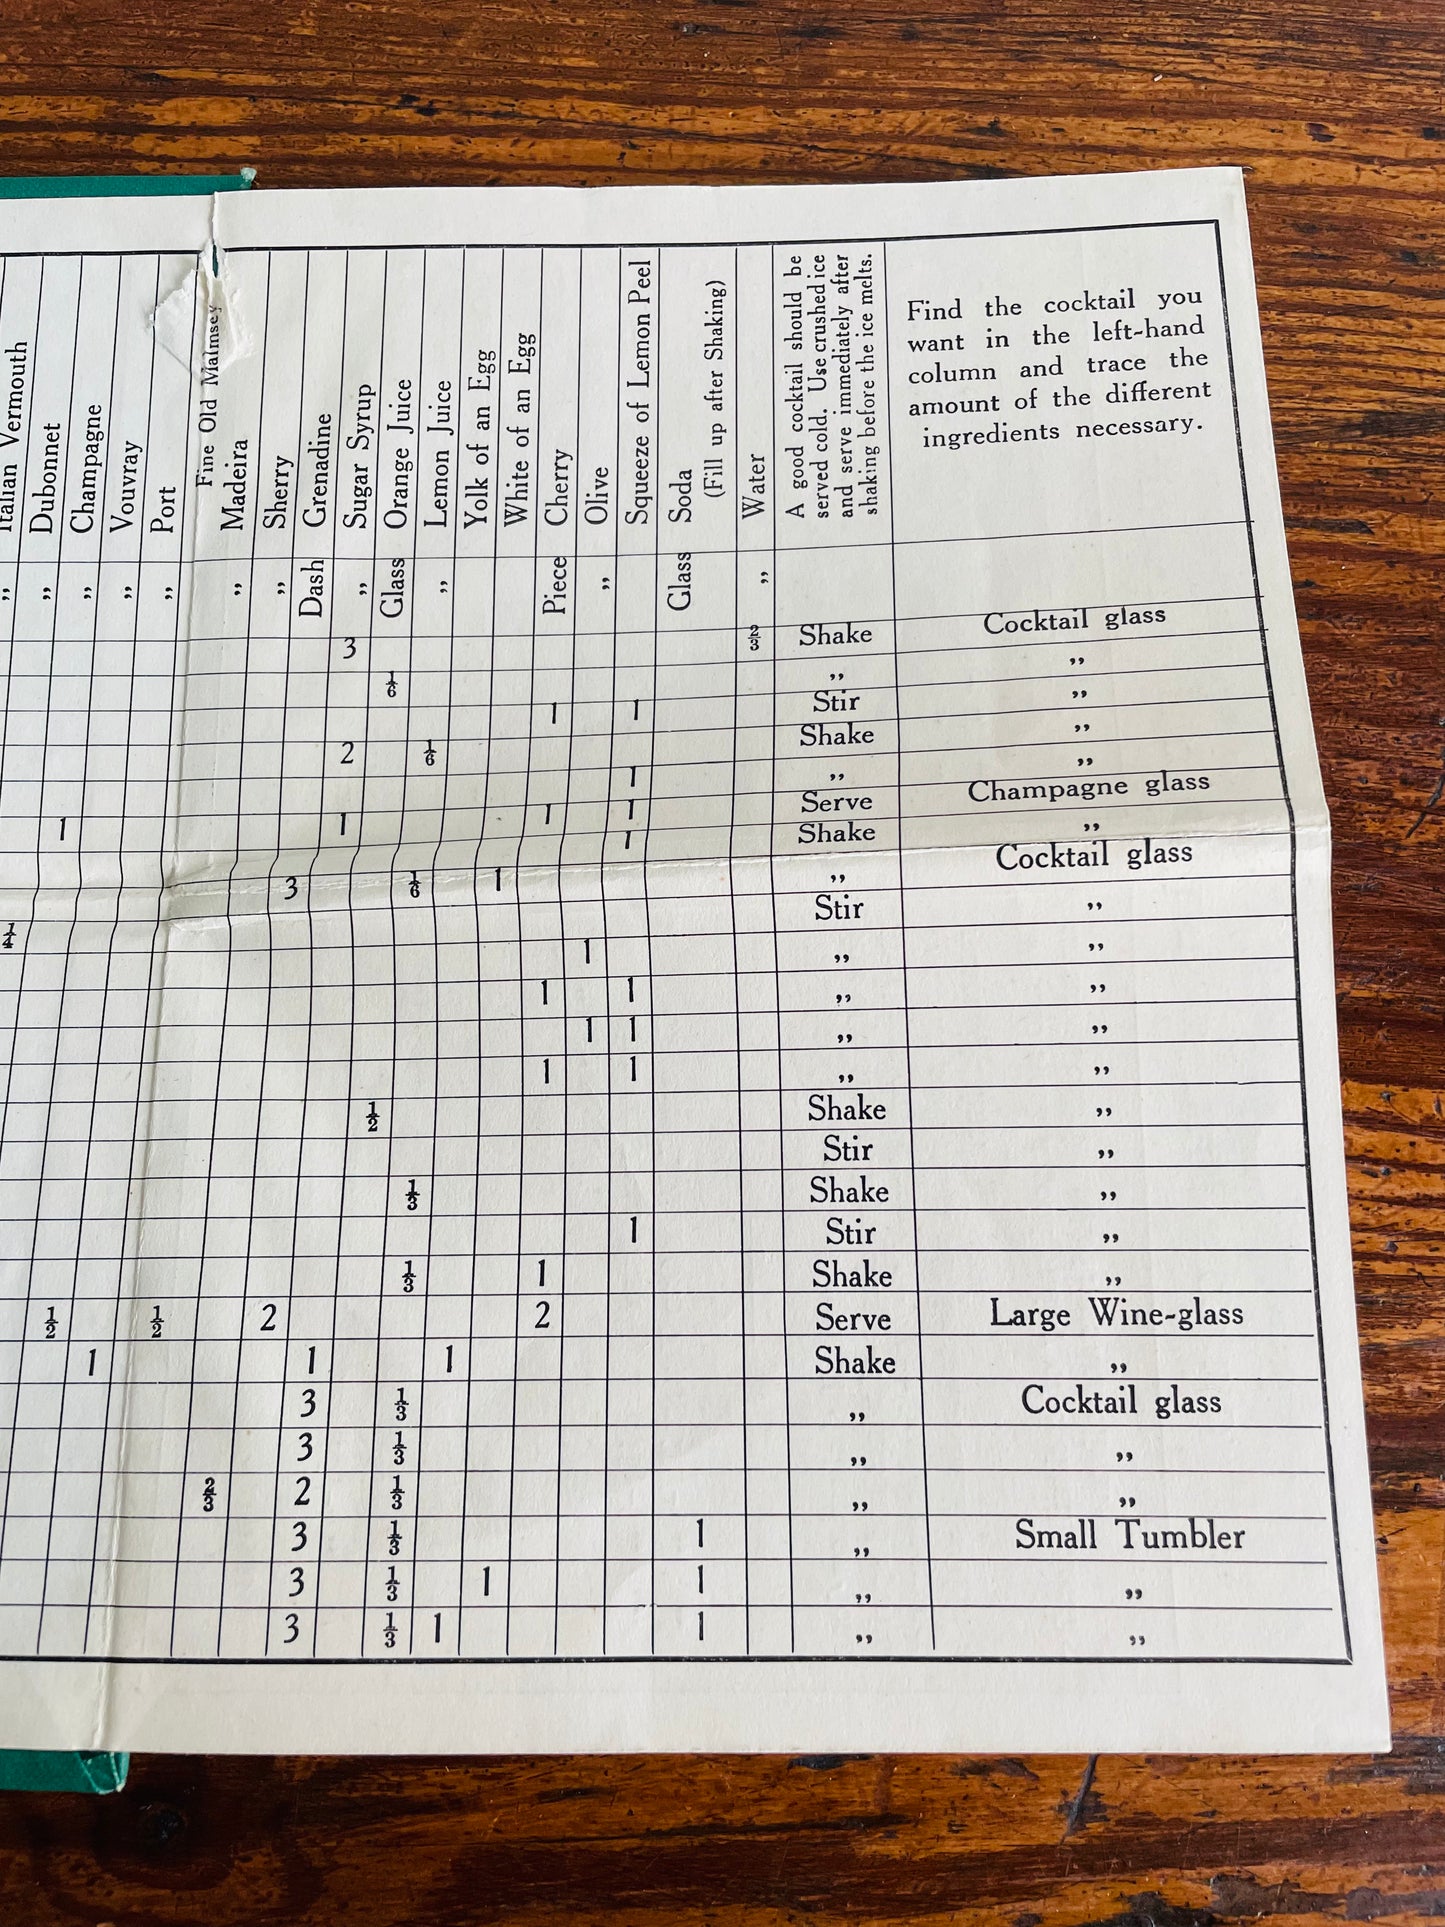 Italian Vermouth
Dubonnet
Champagne
Vouvray
Port
Fine Old Malmsey
Madeira
Sherry
Grenadine
Sugar Syrup
Orange Juice
Lemon Juice
Yolk of an Egg
White of an Egg
Cherry
Olive
Squeeze of Lemon Peel
Soda
(Fill up after Shaking)
Water
A good cocktail should be
served cold. Use crushed ice
and serve immediately after
shaking before the ice melts.
Find the cocktail you
want in the left-hand
column and trace the
amount of the different
ingredients necessary.
„ „ „ „ „ „ „ Dash „ Glass „ Piece „ Glass „
3 ⅔ Shake Cocktail glass
⅙ „ „
1 1 Stir „
2 ⅙ Shake „
1 „ „
1 1 1 1 Serve Champagne glass
1 Shake „
3 ⅙ 1 „ Cocktail glass
¼ Stir „
1 „ „
1 1 „ „
1 1 „ „
1 1 „ „
½ Shake „
Stir „
⅓ Shake „
1 Stir „
⅓ 1 Shake „
½ ½ 2 2 Serve Large Wine-glass
1 1 1 Shake „
3 ⅓ „ Cocktail glass
3 ⅓ „ „
⅔ 2 ⅓ „ „
3 ⅓ 1 „ Small Tumbler
3 ⅓ 1 1 „ „
3 ⅓ 1 1 „ „